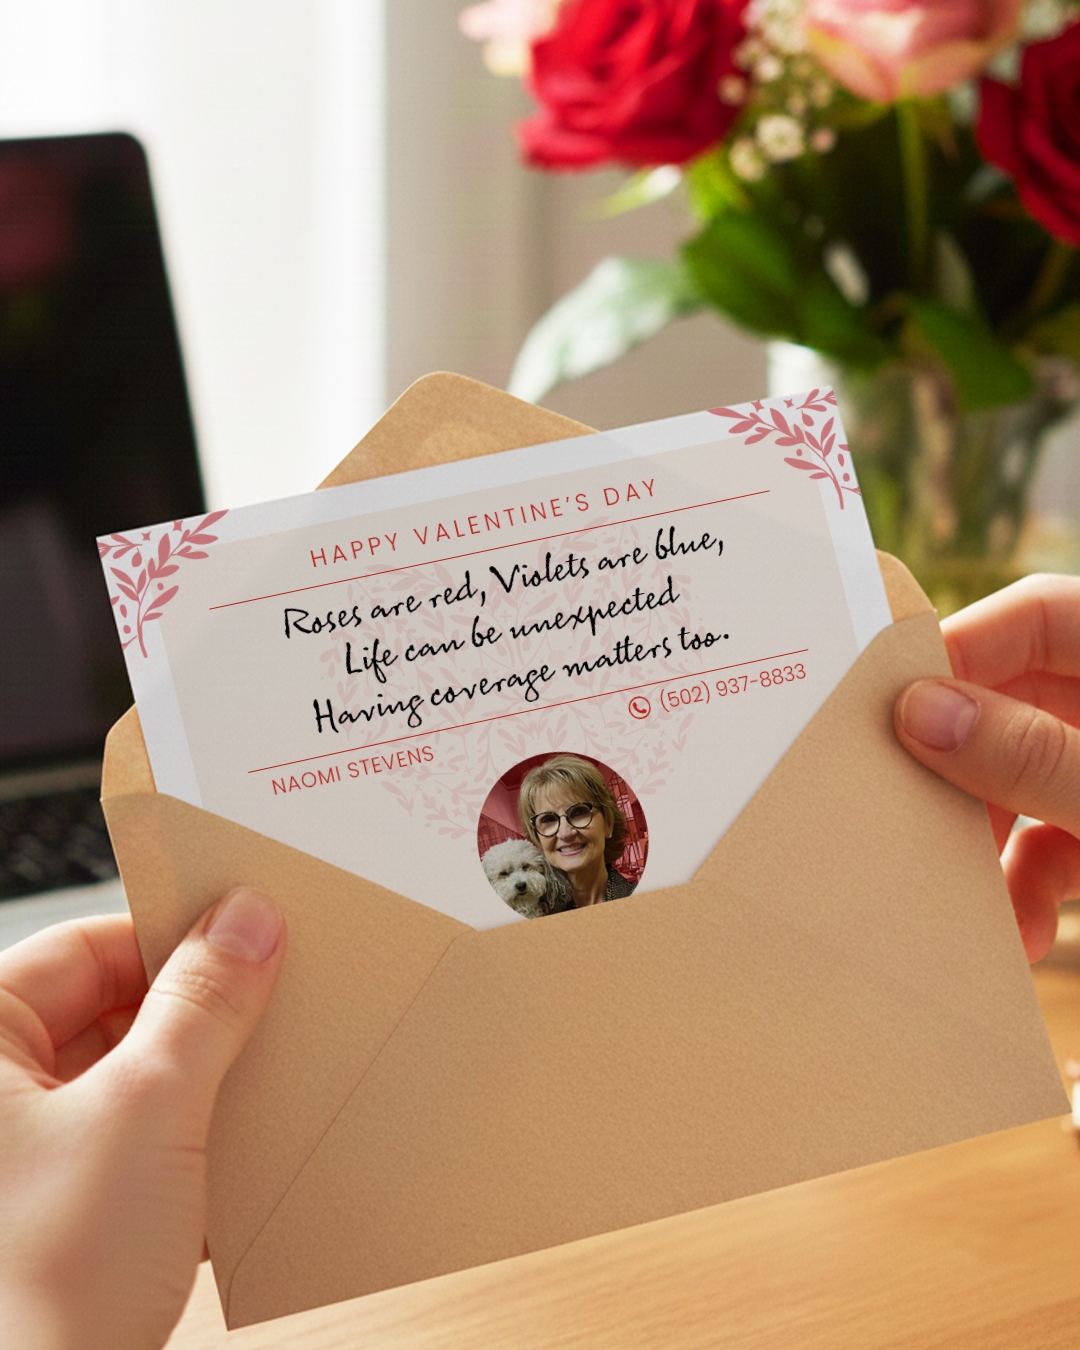 HAPPY VALENTINE'S DAY
Roses are red, Violets are blue,
Life can be unexpected
Having coverage matters too.
NAOMI STEVENS
(502) 937-8833